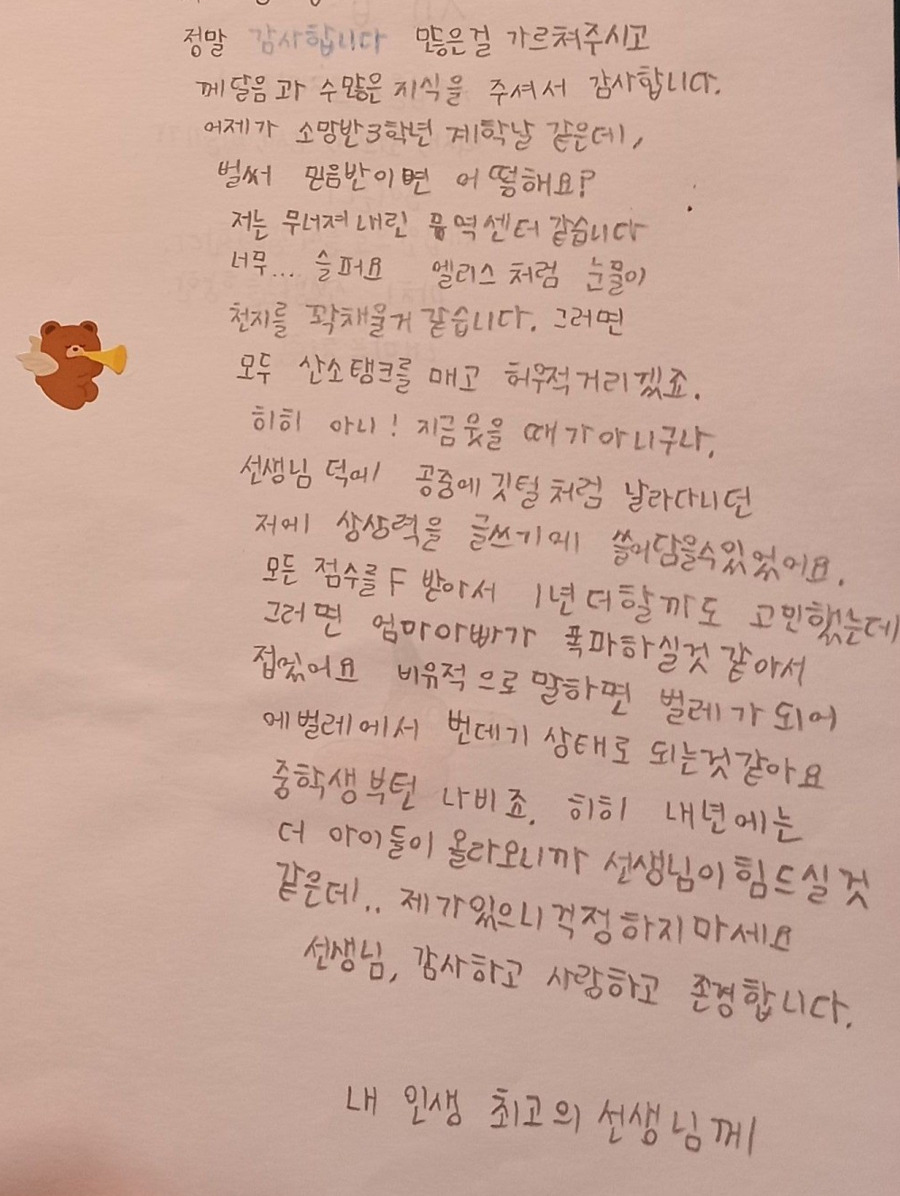 정말 감사합니다 많은걸 가르쳐주시고
께달음과 수많은 지식을 주셔서 감사합니다.
어제가 소망반3학년 계학날 같은데,
벌써 믿음반이면 어떻해요?
저는 무너져내린 뮤역센터 같습니다
너무... 슬퍼요 엘리스처럼 눈물이
천지를 꽉채울거 같습니다. 그러면
모두 산소탱크를 매고 허우적거리겠죠.
히히 아니! 지금 웃을 때가아니구나,
선생님 덕에 공중에 깃털처럼 날라다니던
저에 상상력을 글쓰기에 쓸어담을수있었어요.
모든 점수를 F 받아서 1년더할까도 고민했는데
그러면 엄마아빠가 폭파하실것 같아서
접었어요 비유적으로 말하면 벌레가 되어
에벌레에서 번데기 상태로 되는것같아요
중학생부턴 나비죠. 히히 내년에는
더 아이들이 올라오니까 선생님이힘드실것
같은데.. 제가있으니걱정하지마세요
선생님, 감사하고 사랑하고 존경합니다.
내 인생 최고의 선생님께